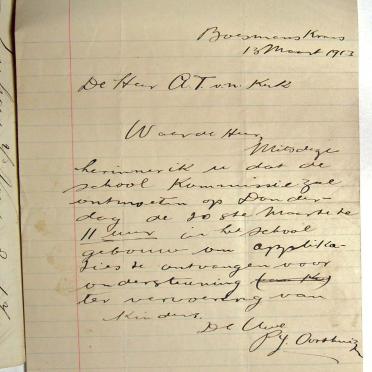 Boesmans Krans
13 Maart 1913
De Heer A.T. v.n. Kerk
Waarde Heer
Mits deze
herinner ik u dat de
school Kommissie zal
ontmoeten op Donder-
dag de 20ste Maart te
11 uur in het School
gebouw om applika-
sies te ontvangen voor
ondersteuning
ter vervoering van
Kinders.
De Uwe
P.J. Oosthuiz